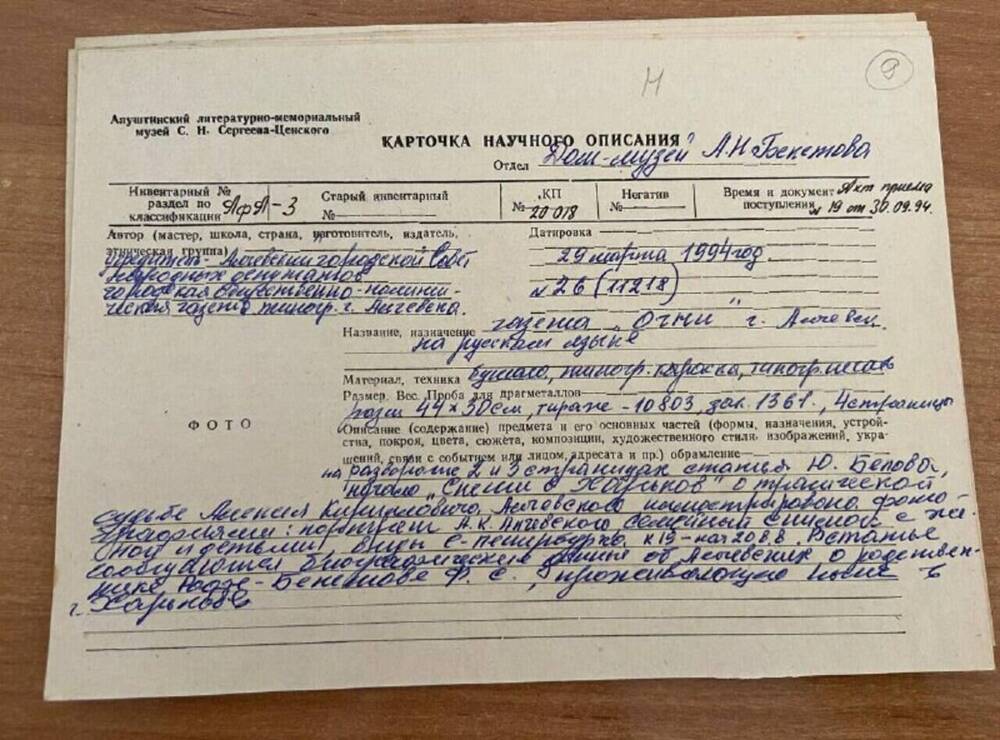 Н
9
Алуштинский литературно-мемориальный
музей С. Н. Сергеева-Ценского
КАРТОЧКА НАУЧНОГО ОПИСАНИЯ
Отдел "Дом-музей А.Н Бекетова
Инвентарный № раздел по классификации АфА-3
Старый инвентарный №
КП № 20 018
Негатив №
Время и документ поступления Акт приема № 19 от 30.09.94.
Автор (мастер, школа, страна, изготовитель, издатель,
этническая группа)
учредитель - Алчевский городской Совет
народных депутатов
городская общественно-полити-
ческая газета типогр. г. Алчевска.
Датировка
29 марта 1994 год
№ 26 (11218)
Название, назначение газета "Огни" г. Алчевск.
на русском языке
Материал, техника бумага, типогр. краска, типогр. печать
Размер. Вес. Проба для драгметаллов
разм 44 х 30 см, тираж - 10803, зак. 1361., 4 страницы
ФОТО
Описание (содержание) предмета и его основных частей (формы, назначения, устрой-
ства, покроя, цвета, сюжета, композиции, художественного стиля изображений, укра-
шений, связи с событием или лицом, адресата и пр.) обрамление
на развороте 2 и 3 страницах статья Ю. Белова,
начало Харьков" о трагической
судьбе Алексея Кирилловича Алчевского иллюстрирована фото-
графиями: портрет А.К. Алчевского семейный снимок с же-
ной и детьми, виды С-Петербурга к 19 - нач 20 в в. В статье
сообщаются биографические данные об Алчевских о родствен-
нике Бекетове Ф. С., проживающем ныне в
г. Харькове